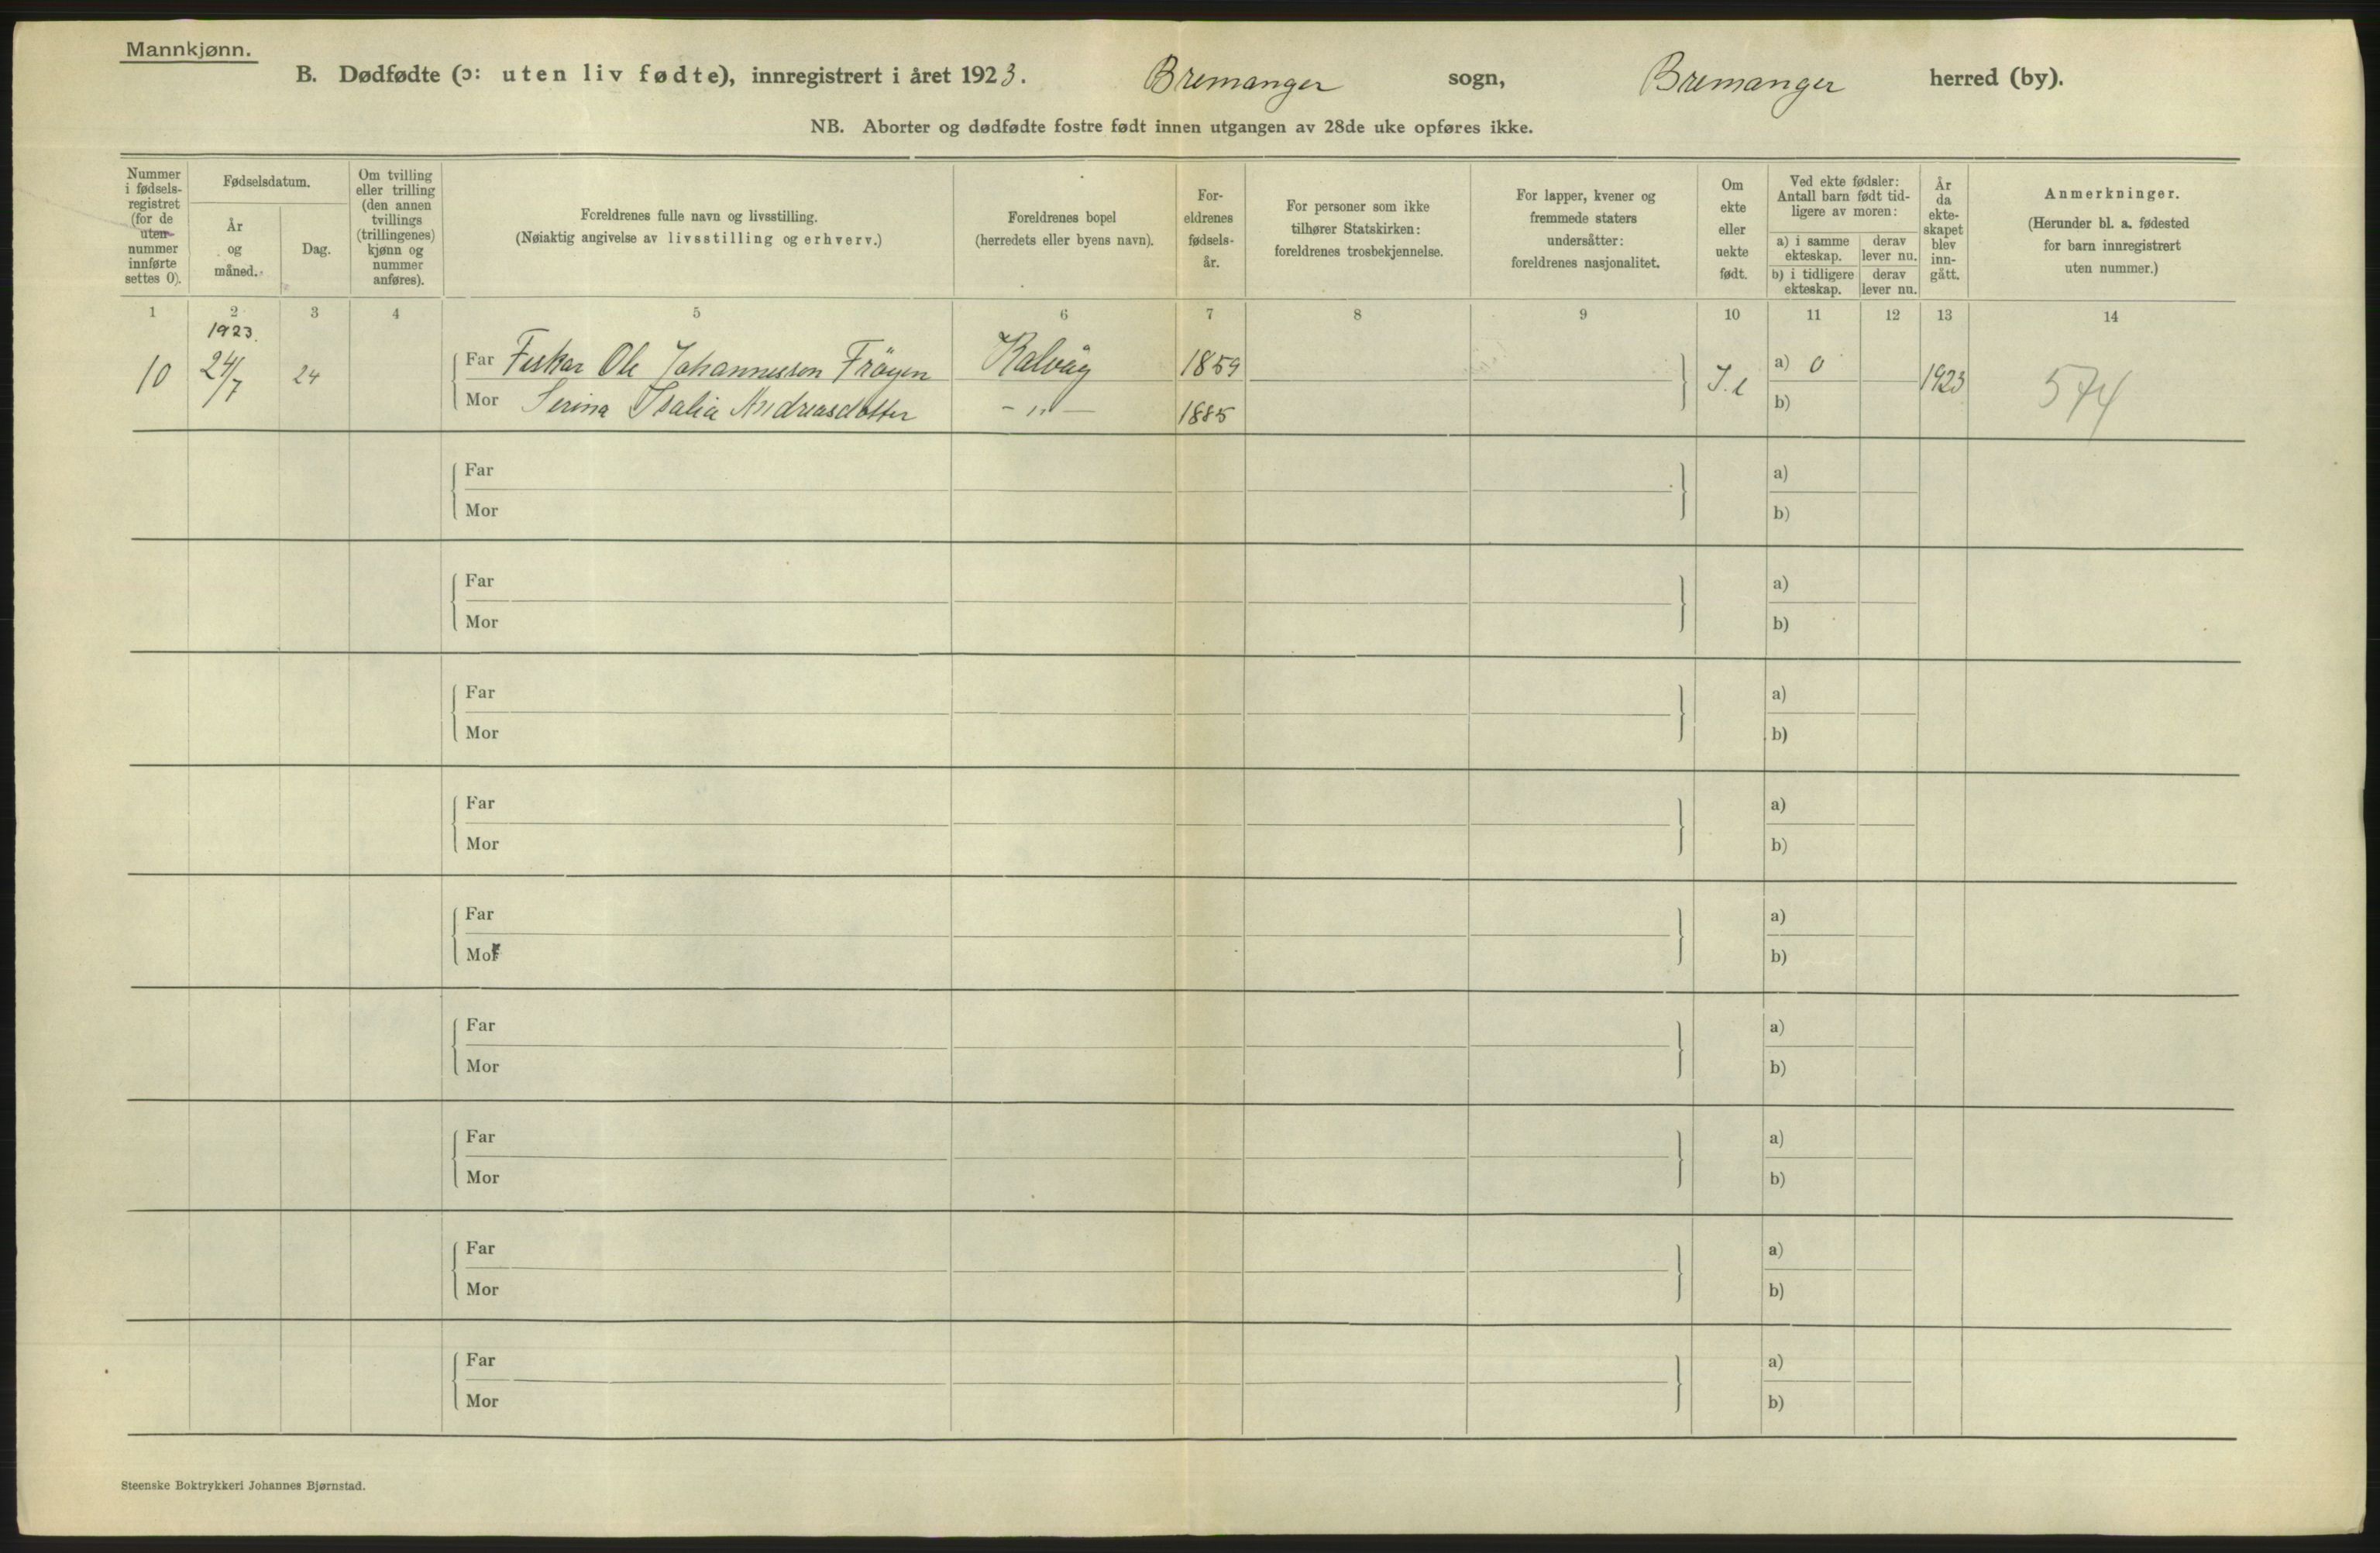 Mannkjønn.
B. Dødfødte (ɔ: uten liv fødte), innregistrert i året 1923. Bremanger sogn, Bremanger herred (by).
NB. Aborter og dødfødte fostre født innen utgangen av 28de uke opføres ikke.
Nummer i fødsels-registret (for de uten nummer innførte settes 0).
Fødselsdatum.
År og måned.
Dag.
Om tvilling eller trilling (den annen tvillings (trillingenes) kjønn og nummer anføres).
Foreldrenes fulle navn og livsstilling.
(Nøiaktig angivelse av livsstilling og erhverv.)
Foreldrenes bopel
(herredets eller byens navn).
For-eldrenes fødsels-år.
For personer som ikke tilhører Statskirken: foreldrenes trosbekjennelse.
For lapper, kvener og fremmede staters undersåtter: foreldrenes nasjonalitet.
Om ekte eller uekte født.
Ved ekte fødsler: Antall barn født tid-ligere av moren:
a) i samme ekteskap.
derav lever nu.
b) i tidligere ekteskap.
derav lever nu.
År da ekte-skapet blev inn-gått.
Anmerkninger.
(Herunder bl. a. fødested for barn innregistrert uten nummer.)
1 2 3 4 5 6 7 8 9 10 11 12 13 14
1923.
10 24/7 24 Far Fiskar Ole Johannesson Frøyen Kalvåg 1859 a) 0 1923 574
Mor Serina Isalia Andreasdotter - " - 1885 b)
Far a)
Mor b)
Far a)
Mor b)
Far a)
Mor b)
Far a)
Mor b)
Far a)
Mor b)
Far a)
Mor b)
Far a)
Mor b)
Far a)
Mor b)
Far a)
Mor b)
Steenske Boktrykkeri Johannes Bjørnstad.